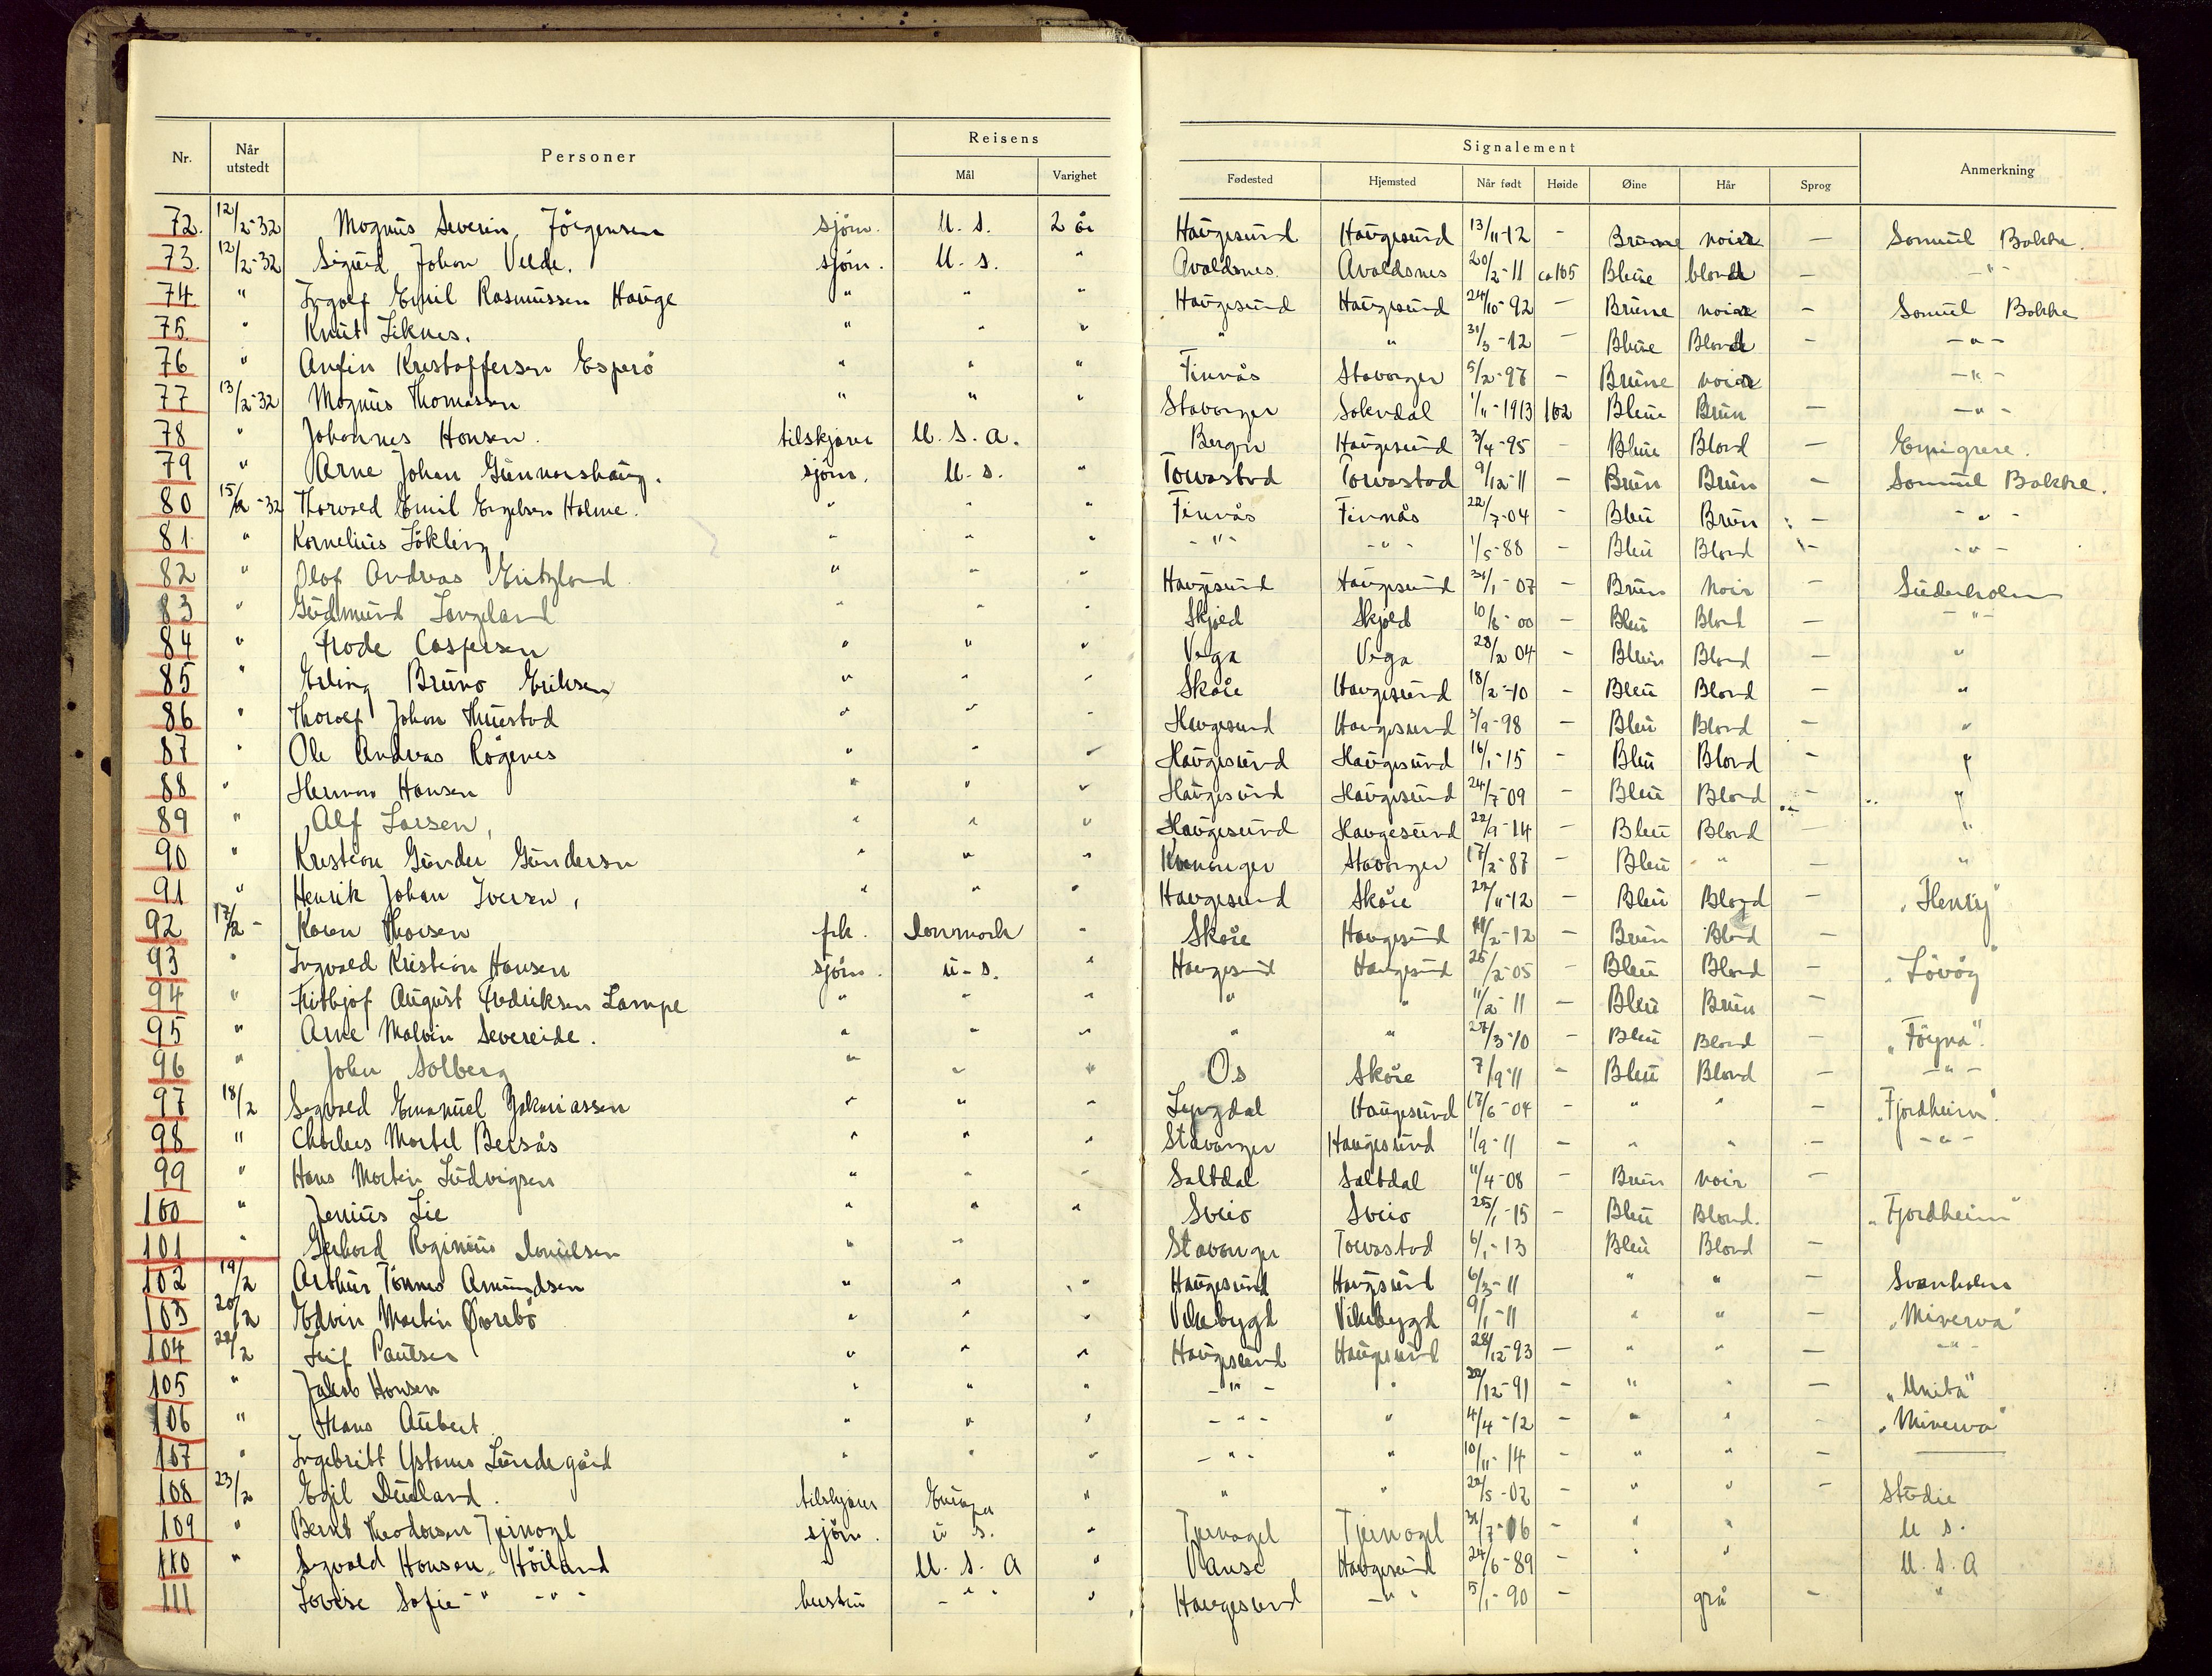 Nr. Når utstedt Personer Reisens Mål Varighet Signalement Fødested Hjemsted Når født Høide Øine Hår Sprog Anmerkning
72. 12/2-32 Magnus Severin Jörgensen sjöm. U. S. 2 år Haugesund Haugesund 13/11-12 - Brune noir — Samuel Bakke.
73. 12/2-32 Sigurd Johan Velde. sjöm. U. S. " Avaldsnes Avaldsnes 20/2-11 ca 165 Bleue blond — -"-
74 " Ingolf Emil Rasmussen Hauge " " " Haugesund Haugesund 24/10-92 - Brune noir - Samuel Bakke
75. " Knut Liknes. " " " " " 31/3-12 - Bleue Blond - -"-
76 " Anfin Kristoffersen Esperö " " " Finnås Stavanger 5/2-97 - Brune noir -"-
77 13/2-32 Magnus Thomassen " " " Stavanger Sokndal 1/11-1913 162 Bleue Brun — -"-
78 " Johannes Hansen. tilskjærer U. S. A. Bergen Haugesund 3/4-95 - Bleue Blond — Emigrere.
79 " Arne Johan Gunnarshaug. sjöm. U. S. " Torvastad Torvastad 9/12-11 - Brun Brun - Samuel Bakke.
80 15/2-32 Thorvald Emil Engelsen Holme. " " " Finnås Finnås 22/7-04 - Bleu Brun — -"-
81 " Kornelius Lökling " " " -"- -"- 1/5-88 - Bleu Blond - -"-
82 " Olof Andreas Eritzland " " " Haugesund Haugesund 31/1-07 - Brun Noir - Suderholm
83 " Gudmund Langeland " " " Skjold Skjold 10/6-00 - Bleu Blond — -"-
84 " Frode Caspersen " " " Vega Vega 28/2 04 - Bleu Blond — "
85 " Erling Bruno Eriksen " " " Skåre Haugesund 18/2-10 - Bleu Blond — "
86 " Thorolf Johan Thuestad " " - Haugesund Haugesund 3/9-98 - Bleu Blond — "
87 " Ole Andreas Rögenes " " " Haugesund Haugesund 16/1-15 - Bleu Blond - "
88 " Herman Hansen " " " Haugesund Haugesund 24/7-09 - Bleu Blond - "
89 " Alf Larsen, " " " Haugesund Haugesund 22/9-14 - Bleu Blond — "
90 " Kristian Gunder Gundersen " " " Stavanger 17/2-87 - Bleu " — "
91 " Henrik Johan Iversen, " " " Haugesund Skåre 22/11-12 - Bleu Blond - "Henry"
92 17/2- Karen Thorsen frk. Danmark - Skåre Haugesund /2-12 - Brun Blond —
93 " Ingvald Kristian Hansen sjöm. U-S. " Haugesund Haugesund 25/2-05 - Bleu Blond — "Lövöy"
94 " Fritbjof August Fredriksen Lampe " " " " " 11/2-11 - Bleu Brun -
95 " Arne Malvin Severeide. " " " " " 27/3-10 - Bleu Blond — "Föyna".
96 " John Solberg " " " Os Skåre 7/9-11 - Bleu Blond - -"-
97 18/2 Sigvald Emanuel Zakariassen " " " Lyngdal Haugesund 17/6-04 - " " - "Fjordheim".
98 " Charles Martel Bersås " " " Stavanger Haugesund 1/9-11 - " " — -"-
99 " Hans Martin Ludvigsen " " " Saltdal Saltdal 11/4-08 Brun noir -
100 " Jenius Lie " " " Sveio Sveio 25/1-15 - Bleu Blond. - "Fjordheim"
101 " Gerhard Reginius Danielsen " " Stavanger Torvastad 6/1-13 Bleu Blond -
102 19/2 Arthur Tönnes Amundsen " " " Haugesund Haugesund 6/3-11 " " — Svanholm
103 20/2 Edvin Martin Øvrebö " " " Vikebygd Vikebygd 9/1-11 " " — "Minerva"
104 22/2 Leif Paulsen " " " Haugesund Haugesund 28/12-93 - " " - -"-
105 " Jakob Hansen " " " -"- " 22/12-91 - " " — "Unita"
106 " Hans Aubert " " " -"- " 4/4-12 - " " - "Minerva"
107 " Ingebritt Ystanes Lundegård " " " -"- " 10/11-14 - " " —
108 23/2 Egil Dueland. tilskjærer Europa " " " 22/5-02 - " " — Studie
109 " Bernt Theodorsen Tjernagl sjöm. U S. " Tjernagel Tjernagel 31/7-06 - " " U S.
110 " Sigvald Hansen Höiland " U. S. A " Vanse Haugesund 24/6-89 - " " U. S. A
111 Lovise Sofie -"- -"- hustru -"- " Haugesund -"- 5/1-90 - grå — "